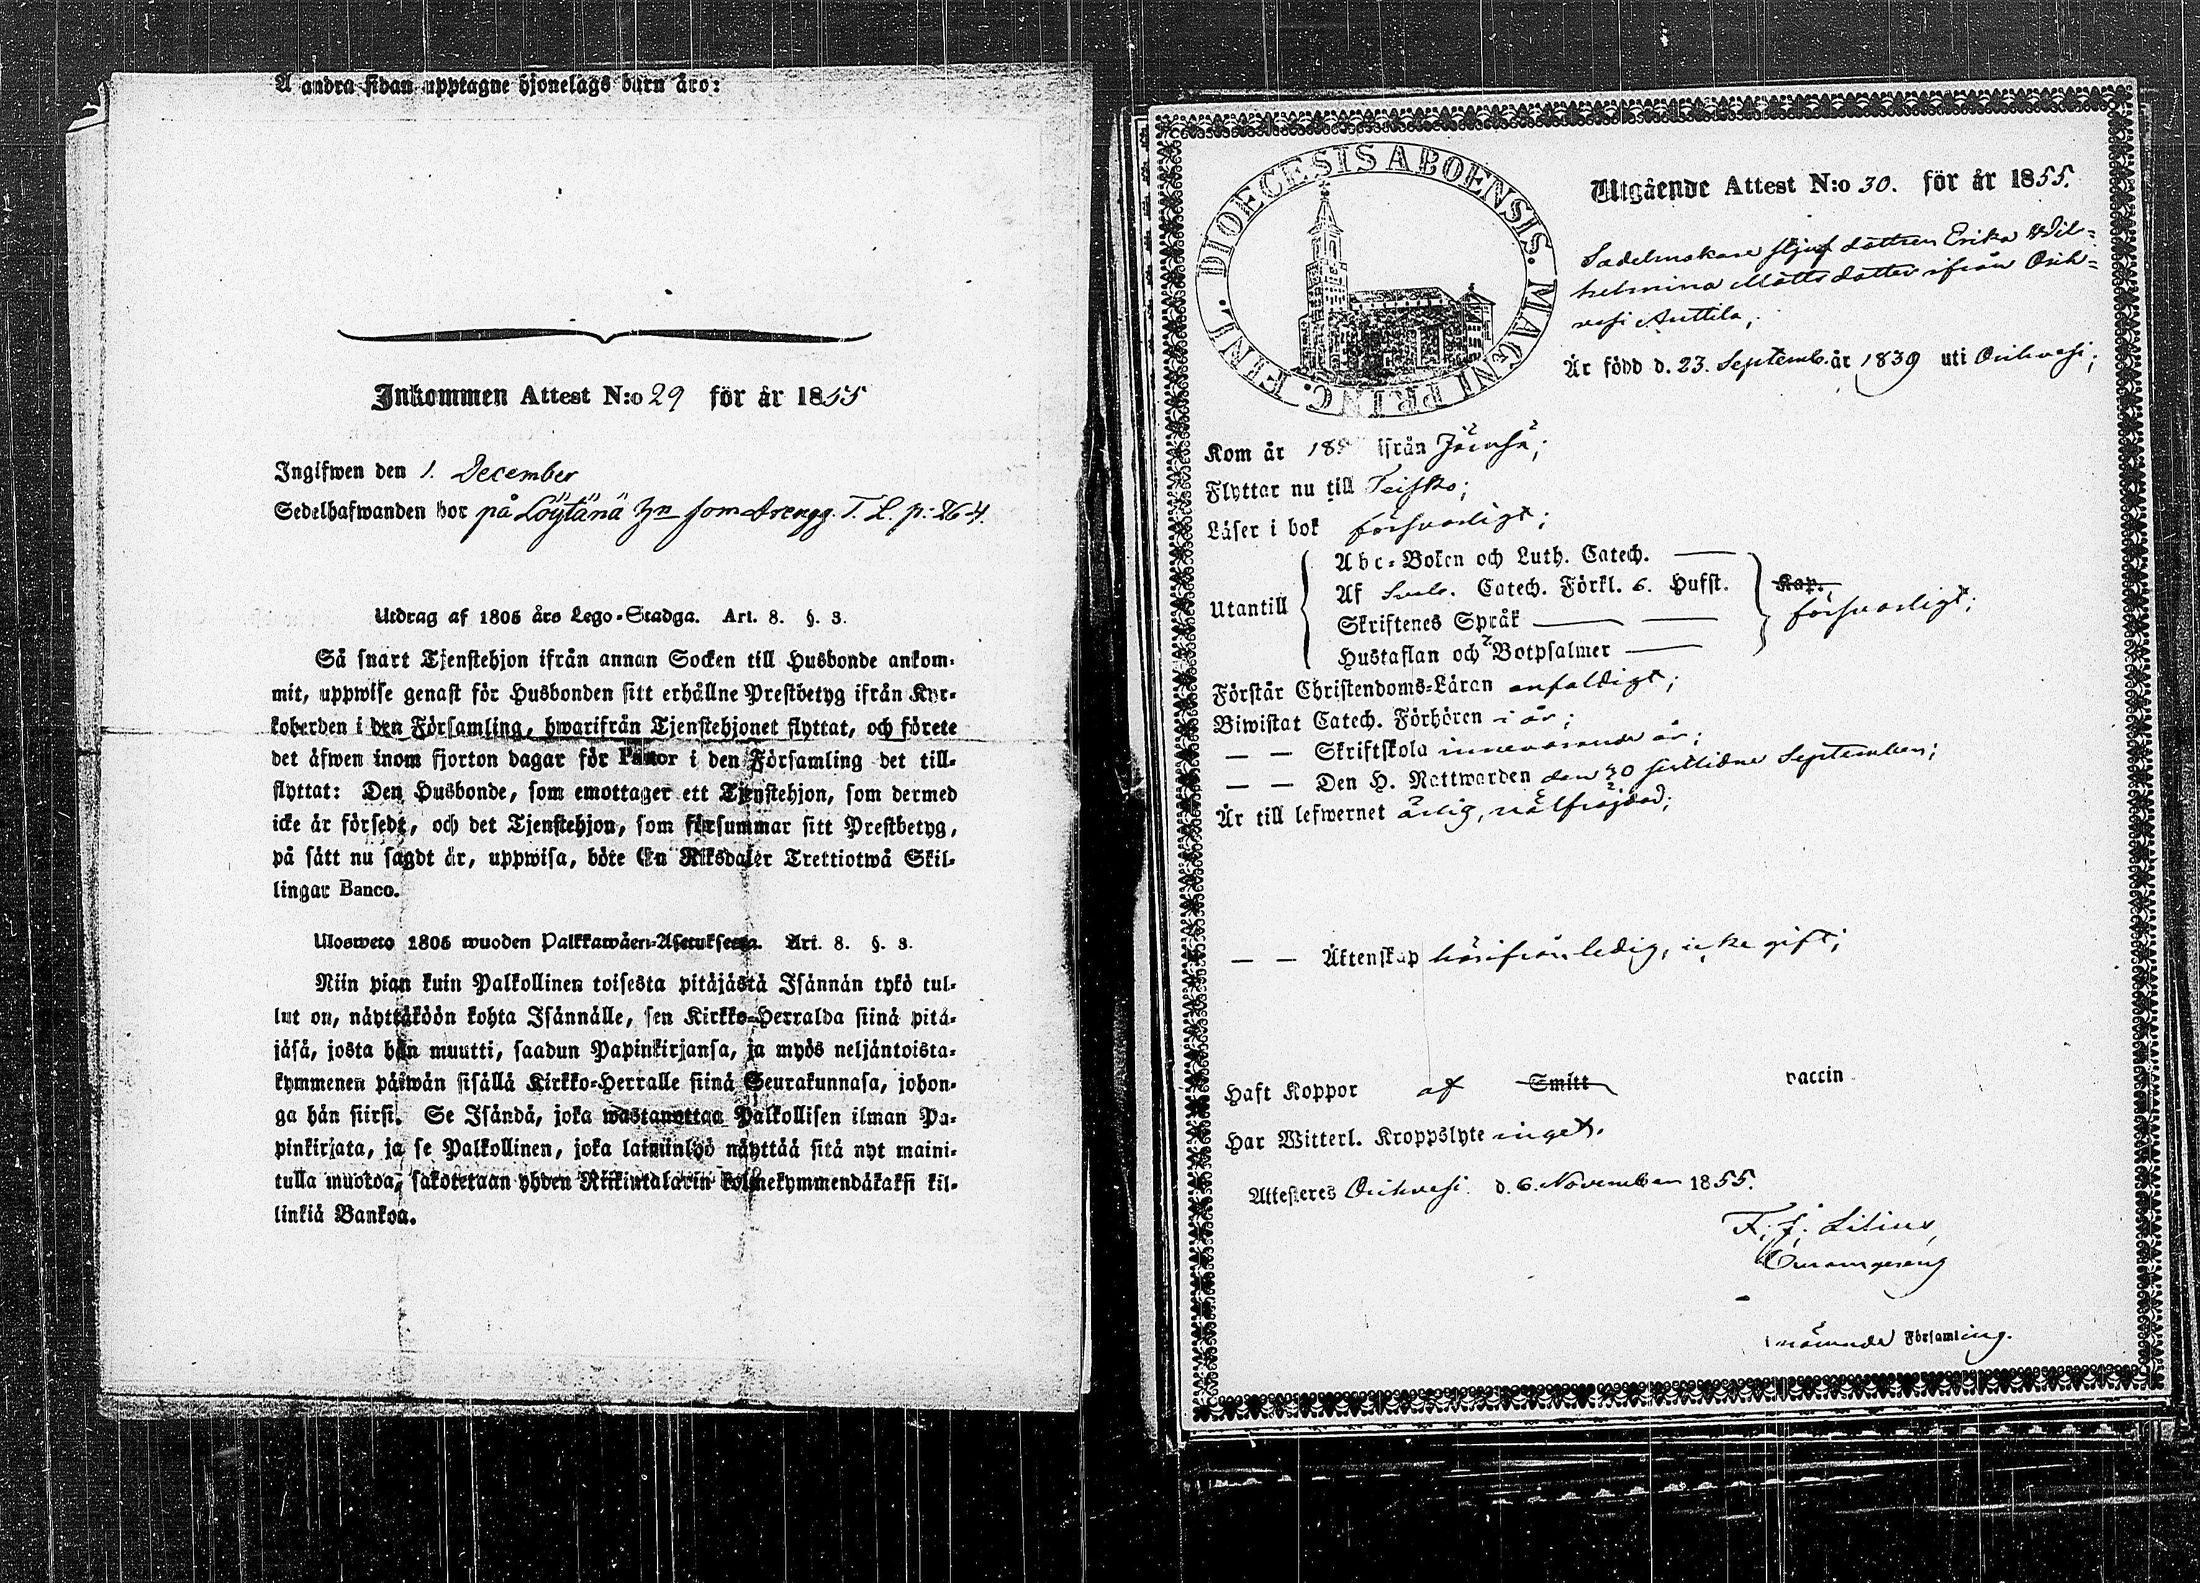 Å andra sidan upptagne hjonelags barn äro:
Inkommen Attest N:o 29 för år 1855
Ingifwen den 1. December
Sedelhafwanden bor på Löytänä hn som drengg. T. L. p: 264.
Utdrag af 1805 års Lego-Stadga. Art. 8. §. 3.
Så snart Tjenstehjon ifrån annan Socken till Husbonde ankom-
mit, uppwise genast för Husbonden sitt erhållne Prestbetyg ifrån Kyr-
koherden i den Församling, hwarifrån Tjenstehjonet flyttat, och förete
det äfwen inom fjorton dagar för Pastor i den Församling det till-
flyttat: Den Husbonde, som emottager ett Tjenstehjon, som dermed
icke är försedt, och det Tjenstehjon, som försummar sitt Prestbetyg,
på sätt nu sagdt är, uppwisa, böte En Riksdaler Trettiotwå Skil-
lingar Banco.
Ulosweto 1805 wuoden Palkkawäen-Asetuksesta. Art. 8. §. 3.
Niin pian kuin Palkollinen toisesta pitäjästä Isännän tykö tul-
lut on, näyttäköön kohta Isännälle, sen Kirkko-Herralda siinä pitä-
jäsä, josta hän muutti, saadun Papinkirjansa, ja myös neljäntoista-
kymmenen päiwän sisällä Kirkko-Herralle siinä Seurakunnasa, johon-
ga hän siirsi. Se Isändä, joka wastanottaa Palkollisen ilman Pa-
pinkirjata, ja se Palkollinen, joka laiminlyö näyttää sitä nyt maini-
tulla muotoa, sakotetaan yhden Riikintalarin kolmekymmendäkaksi kil-
linkiä Bankoa.
DIOECESIS ABOENSIS. MAGNI PRINC. FINL.
Utgående Attest N:o 30. för år 1855.
Sadelmakare styfdottren Erika Wil-
helmina Mattsdotter ifrån Orih-
vesi Anttila,
Är född d. 23. Septemb. år 1839 uti Orihvesi;
Kom år 185 ifrån Jämsä;
Flyttar nu till Teisko;
Läser i bok försvarligt;
Utantill
Abc-Boken och Luth. Catech. —
Af Sveb. Catech. Förkl. 6. Hufst. Kap.
försvarligt;
Skriftenes Språk — —
Hustaflan och 2 Botpsalmer —
Förstår Christendoms-Läran enfaldigt;
Biwistat Catech. Förhören i år;
— — Skriftskola innevarande år;
— — Den H. Nattwarden den 30 sistlidne September;
Är till lefwernet ärlig, välfräjdad;
— — Äktenskap härifrån ledig, icke gift;
Haft Koppor af Smitt vaccin
Har Witterl. Kroppslyte inget.
Attesteres Orihvesi d. 6. November 1855.
F. J. Lilius,
i nämnde Församling.